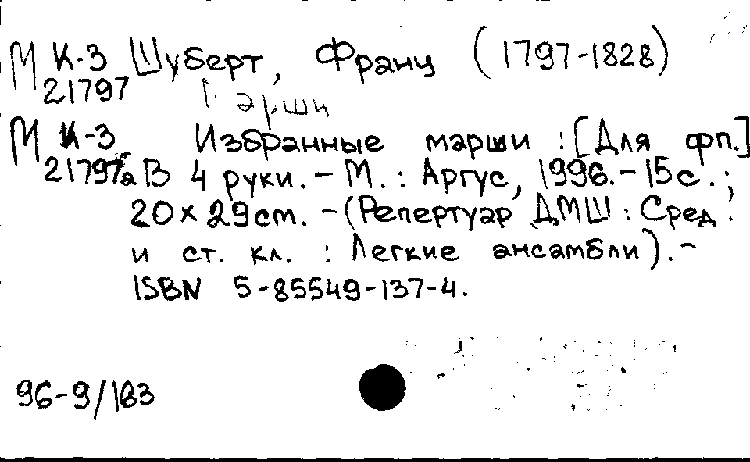 М К-3 Шуберт, Франц (1797-1828)
21797 Марши
М К-3 Избранные марши : [Для фп.]
21797а В 4 руки. - М. : Аргус, 1996. - 15 с. ;
20 x 29 cm. - (Репертуар ДМШ : Сред.
и ст. кл. : Легкие ансамбли). -
ISBN 5-85549-137-4.
96-9/183